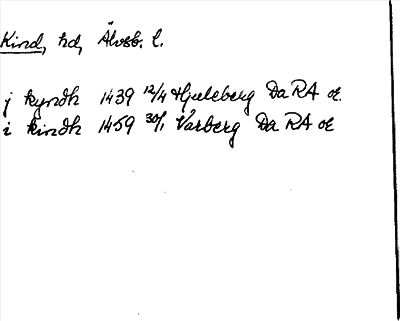 Kind, hd, Älvsb. l.
j kyndh 1439 12/4 Hjuleberg Da RA or.
i kindh 1459 30/1 Varberg Da RA or